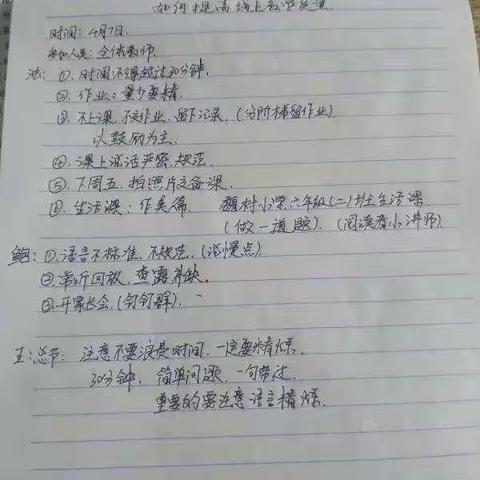 如何提高线上教学质量
时间：4月7日.
参加人员：全体教师.
池：①、时间不得超过30分钟.
②、作业：量少要精.
③、不上课，不交作业，留下记录，（分阶梯留作业）
以鼓励为主.
④、课上说话严密，规范.
⑤、下周五，拍照片交备课.
⑥、生活课：作美篇 魏村小学六年级(二)班生活课
（做一道题）.（阅读者小讲师）
鲍：①、语言不标准，不规范，（说慢点）.
②、重新回放，查露补缺.
③、开家长会，（钉钉群）.
王：总节：注意不要浪费时间，一定要精炼.
30分钟，简单问题，一句带过.
重要的要注意语言精炼.